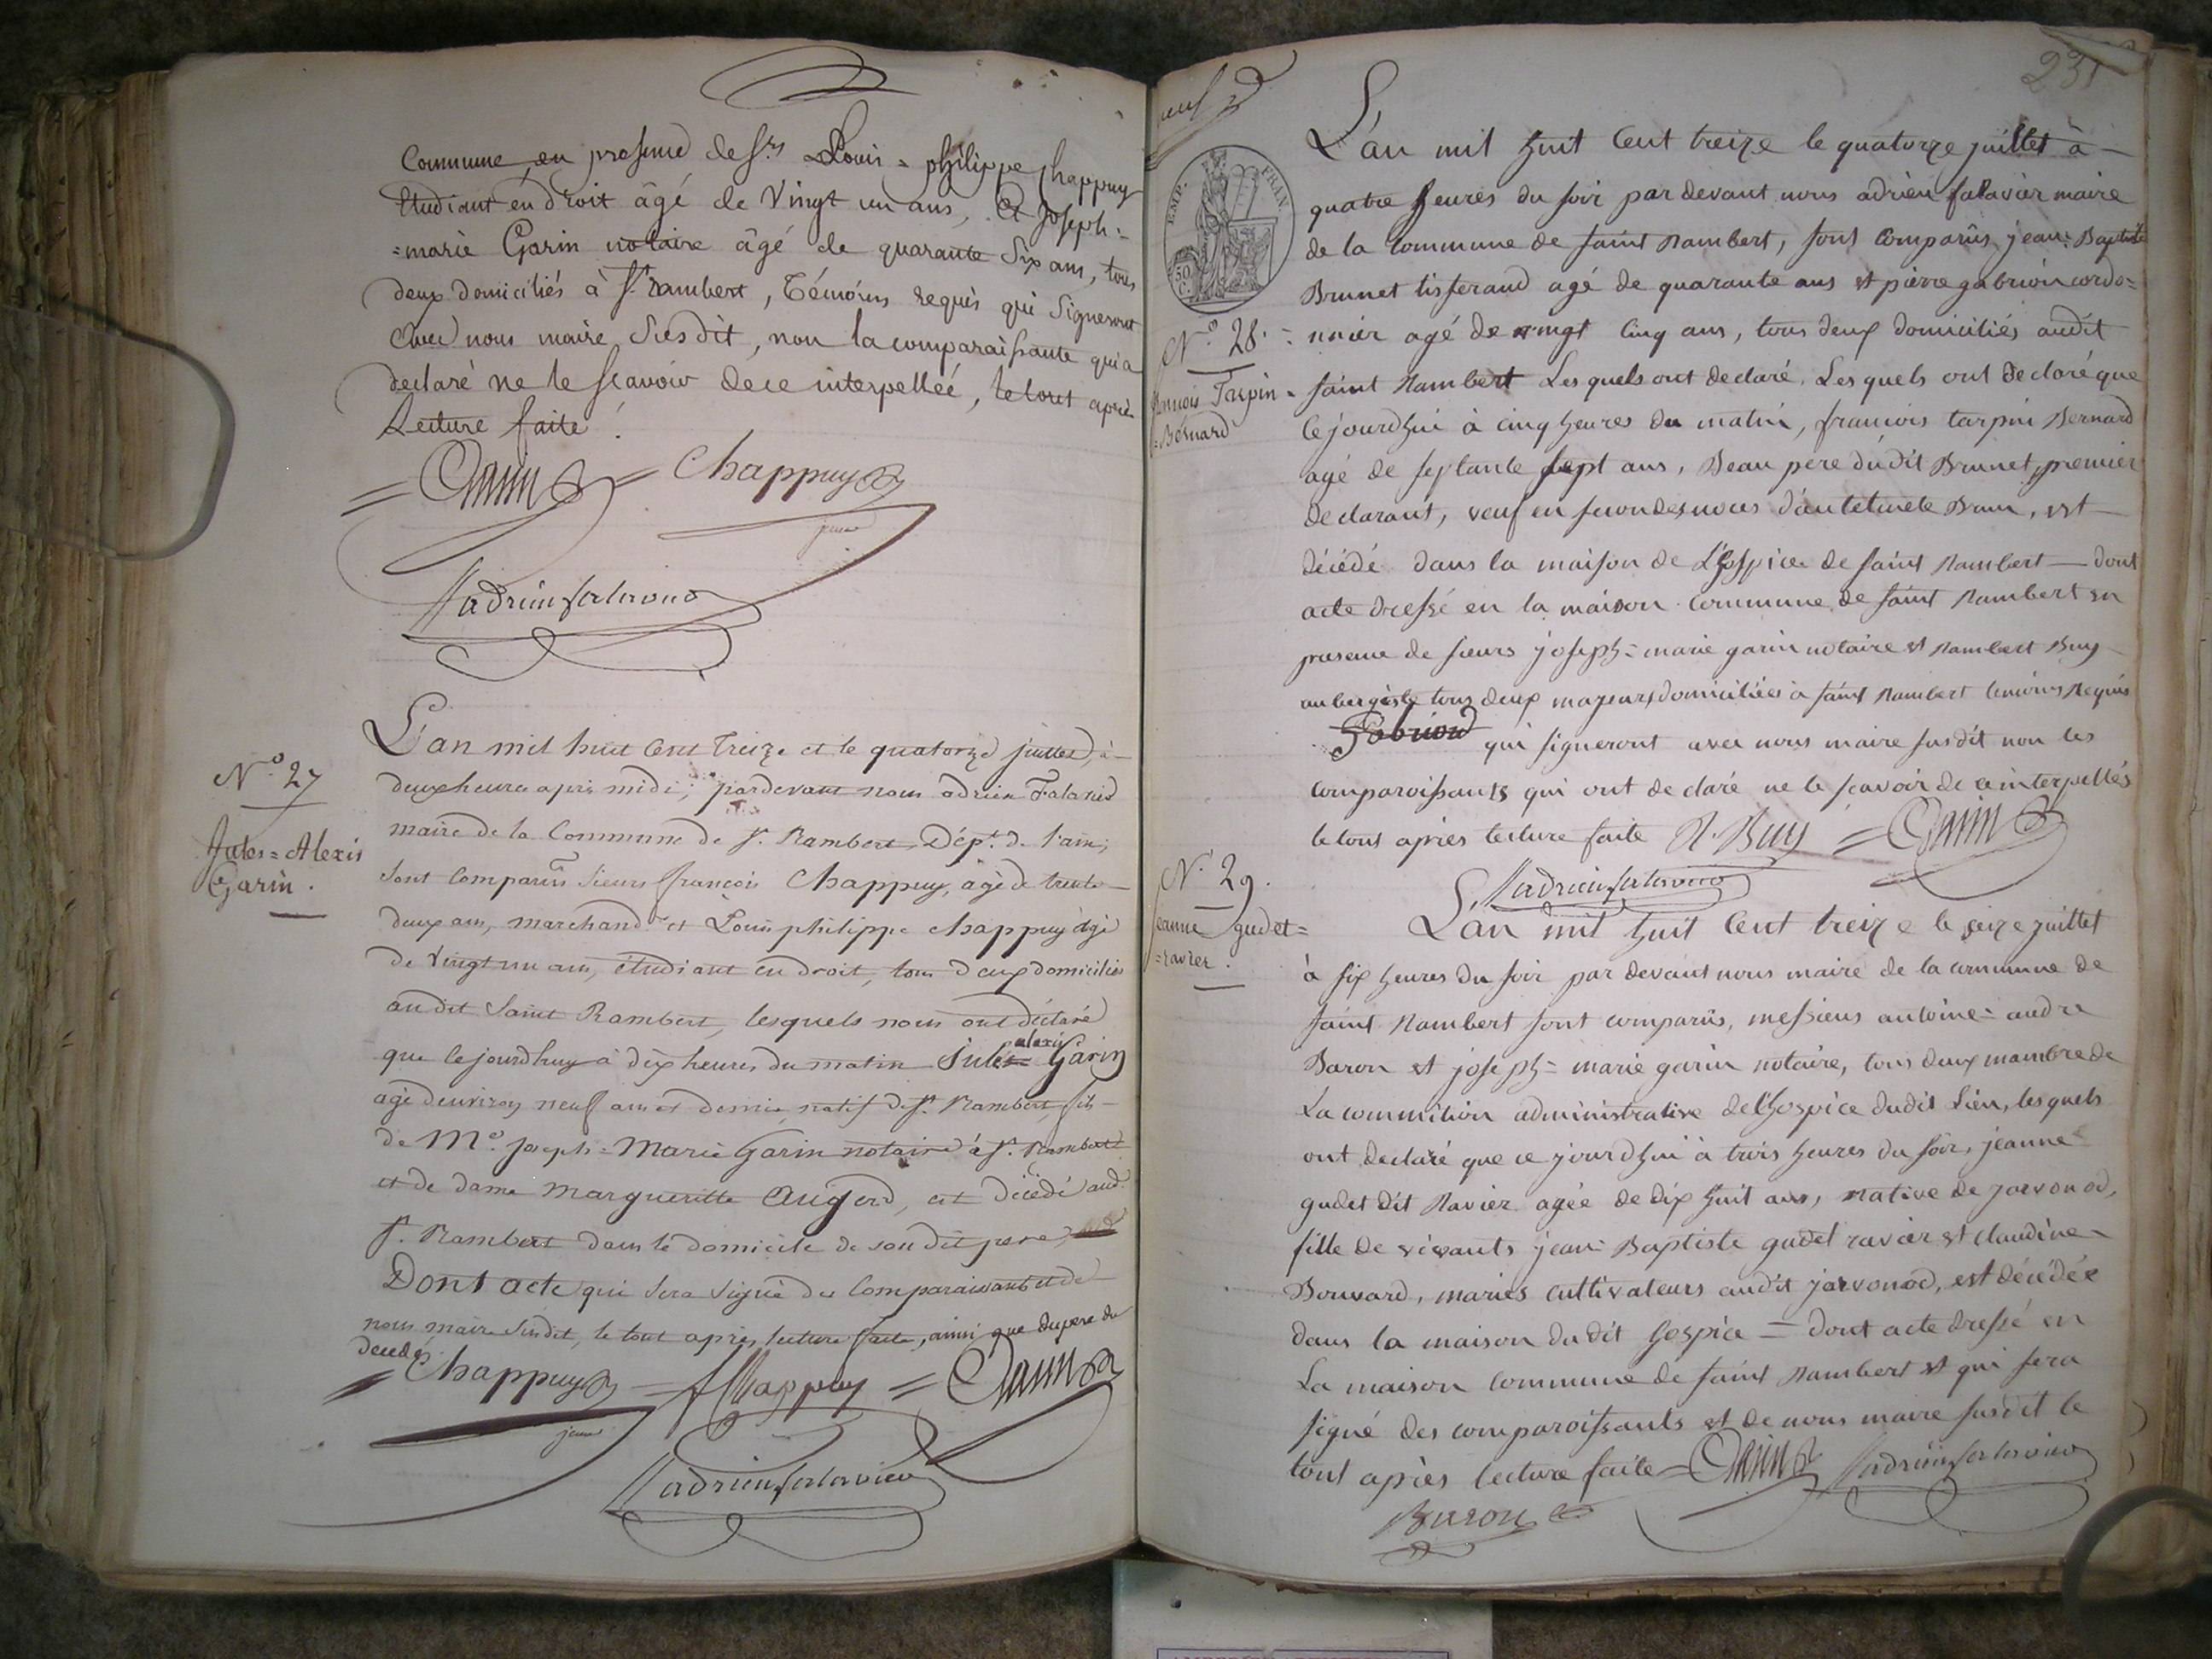 Commune, en presence de Srs Louis = philippe chappuy
Etudiant en droit âgé de Vingt un ans, Et Joseph =
= marie Garin notaire âgé de quarante Six ans, tous
deux domiciliés à St. rambert, Témoins requis qui Signeront
avec nous maire Susdit, non la comparaissante qui a
declaré ne le scavoir de ce interpellée, le tout après
Lecture faite.
= Garin = Chappuy
jeune
adrien falavier
N.o 27
Jules = Alexis
Garin.
L'an mil huit Cent Treize et le quatorze juillet, à
deux heures après midi; pardevant nous adrien Falavier
maire de la Commune de St. Rambert, Dépt. de l'ain;
Sont Comparus Sieurs françois Chappuy, âgé de trente
deux ans, marchand et Louis philippe chappuy âgé
de Vingt un ans, étudiant en droit, tous deux domiciliés
audit Saint Rambert, lesquels nous ont déclaré
que cejourdhuy à dix heures du matin Jules alexis Garin
agé d'environ neuf ans et demie natif de St. Rambert, fils
de Me. Joseph = Marie Garin notaire à St. Rambert
et de dame Margueritte Augerd, est décédé aud.
St. Rambert dans le domicile de son dit pere,
Dont acte qui sera signé des Comparaissants et de
nous maire Susdit, le tout après lecture faite, ainsi que du pere du
decedé
= Chappuy = f Chappuy = Garin
jeune
adrien falavier
neuf
231
EMP. FRAN.
50 C.
L'an mil huit Cent treize le quatorze juillet à
quatre heures du soir par devant nous adrien falavier maire
de la Commune de saint Rambert, sont Comparûs jean = Baptiste
Brunet tisserand agé de quarante ans et pierre gabrion cordo =
N.o 28. = nnier agé de vingt Cinq ans, tous deux domiciliés audit
françois Tarpin = saint Rambert Les quels ont declaré. Les quels ont declaré que
= Bernard cejourdhui à cinq heures du matin, françois tarpin Bernard
agé de septante sept ans, Beau pere du dit Brunet, premier
declarant, veuf en secondes noces d'antelmete Brun, est
décédé dans la maison de L'hospice de saint Rambert — dont
acte dressé en la maison commune de saint Rambert en
presence de sieurs joseph = marie garin notaire et Rambert Buy
aubergiste tous deux majeurs, domiciliés à saint Rambert temoins Requis
Gabriond qui signeront avec nous maire susdit non les
comparoissants qui ont declaré ne le scavoir de ce interpellés
le tous après lecture faite R. Buy = Garin
adrien falavier
N.o 29.
jeanne gudet =
= ravier.
L'an mil huit Cent treize le seize juillet
à six heures du soir par devant nous maire de la commune de
saint Rambert sont comparûs, messieurs antoine = andre
Baron et joseph = marie garin notaire, tous deux mambre de
La commition administrative de l'hospice dudit Lieu, lesquels
ont declaré que ce jourdhui à trois heures du soir, jeanne
gudet dit Ravier agée de dix huit ans, native de jarvonod,
fille de vivants jean = Baptiste gudet ravier et claudine
Bouvard, mariés cultivateurs audit jarvonod, est décédée
dans la maison du dit hospice = dont acte dressé en
La maison commune de saint Rambert et qui sera
signé des comparoissants et de nous maire susdit le
tout après lecture faite = Garin adrien falavier
Baron